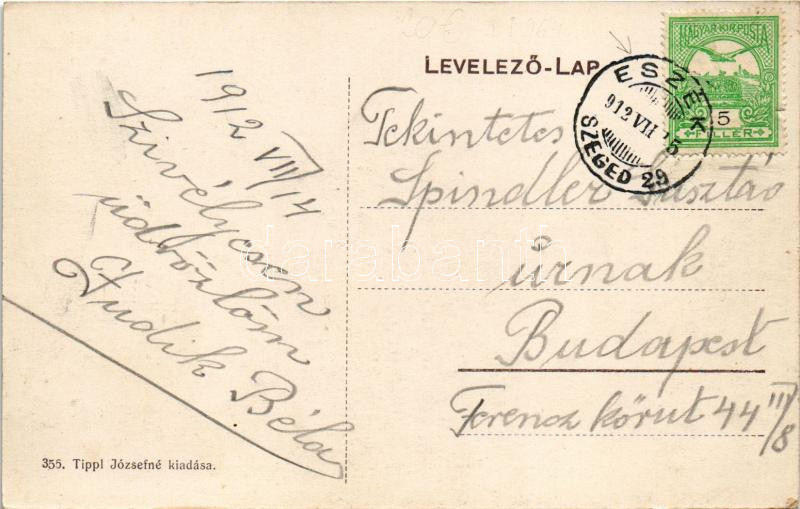 LEVELEZŐ-LAP
MAGYAR KIR. POSTA
5
FILLÉR
ESZÉK
912 VII 15
SZEGED 29
1912 VII/14
Szivélyesen
üdvözlöm
Judik Béla
Tekintetes
Spindler Gusztáv
úrnak
Budapest
Ferencz körut 44 III/8
darabanth
355. Tippl Józsefné kiadása.